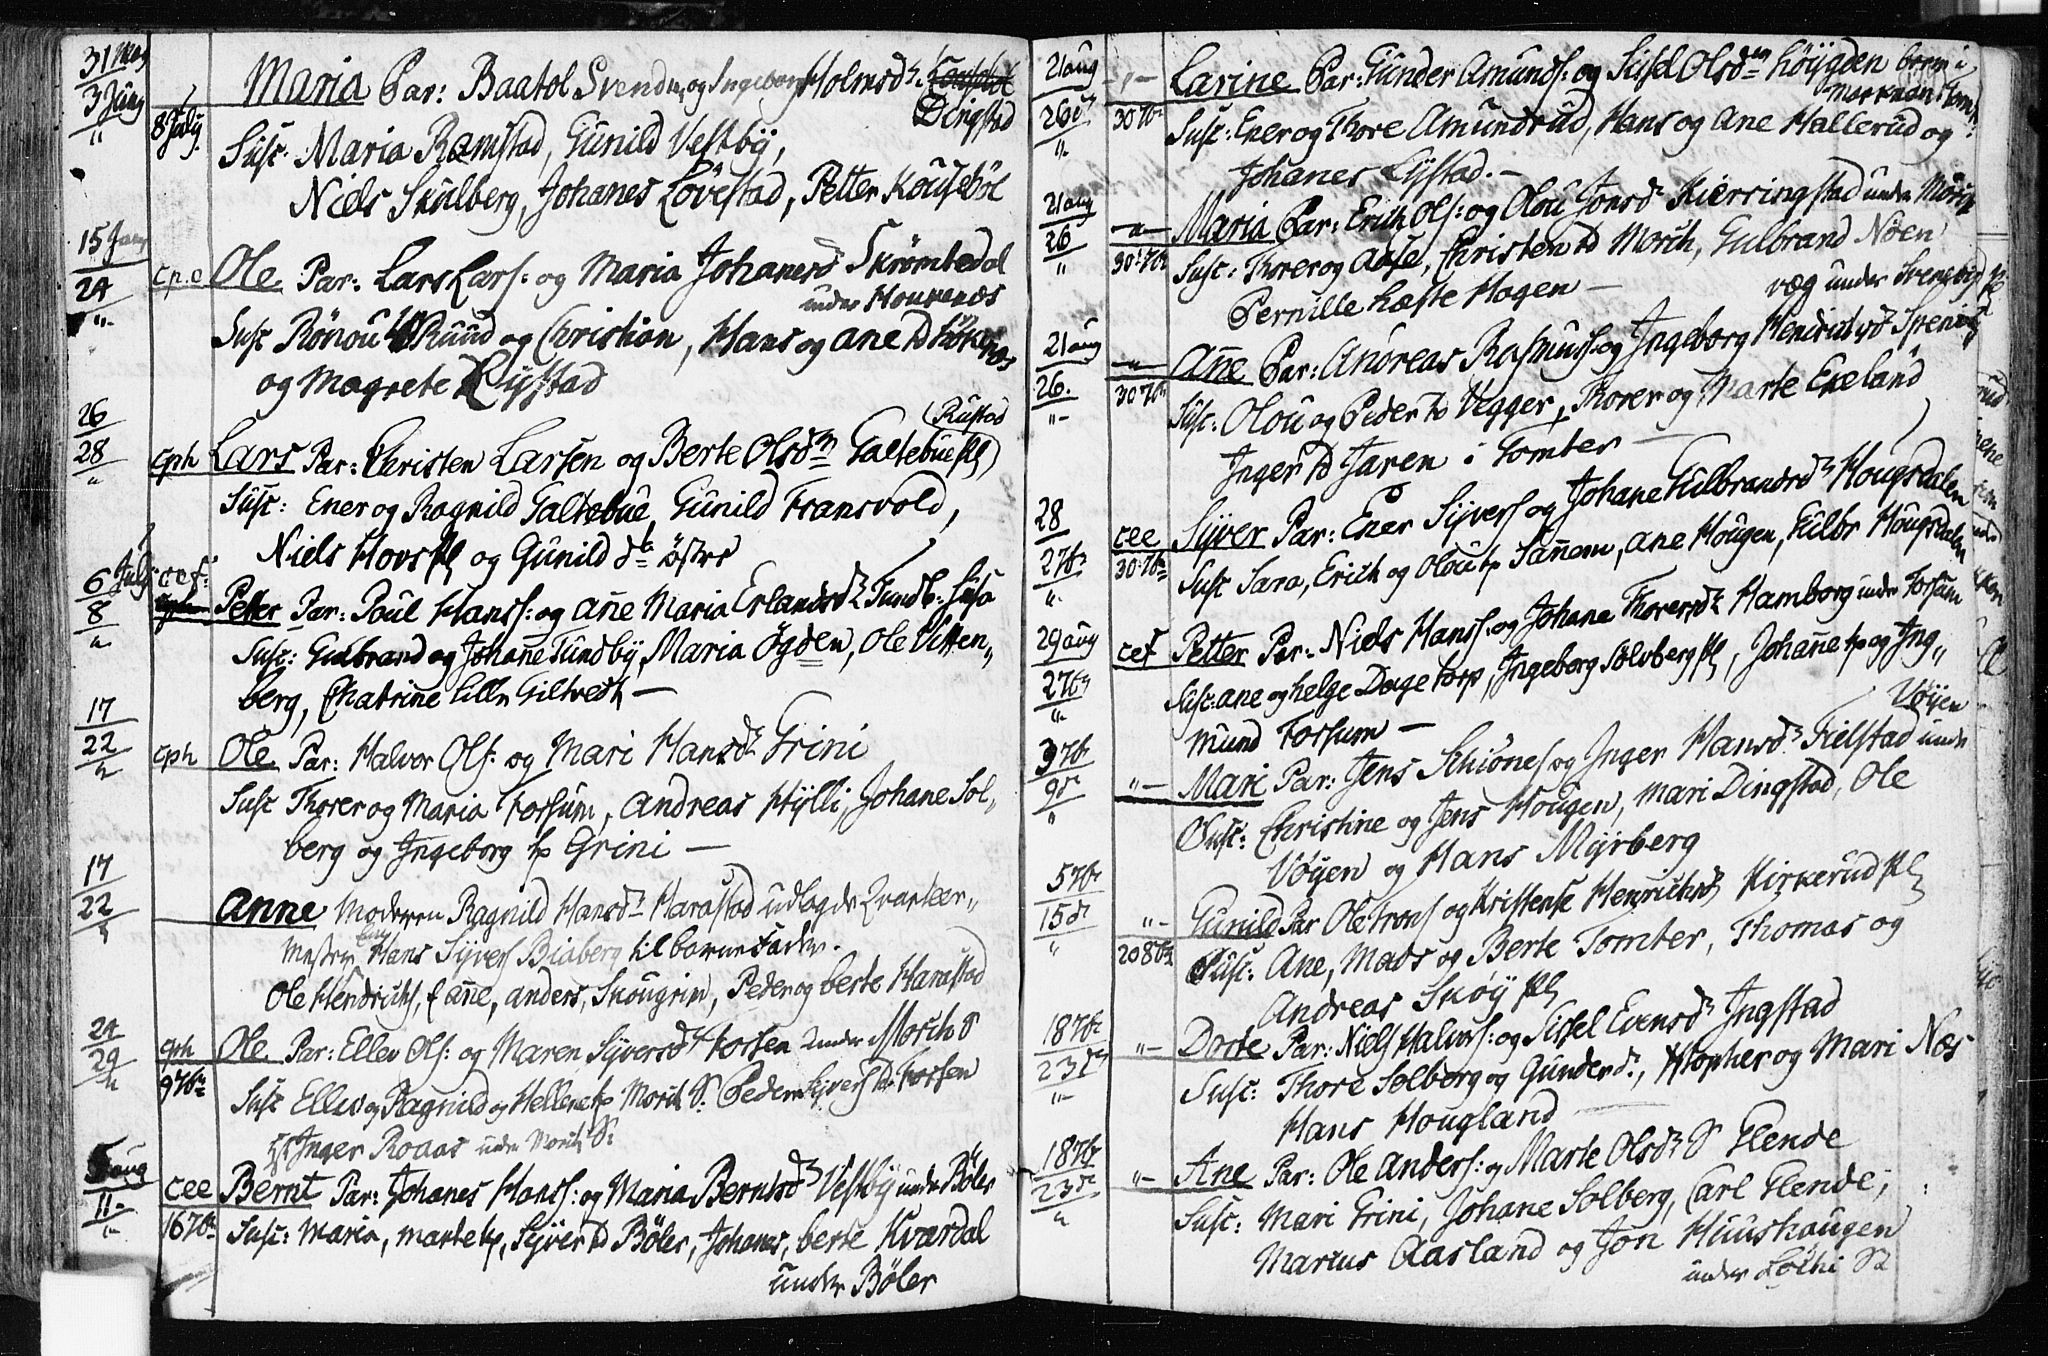 31 May
3 Juny
"
8 July
Maria Par: Baatol Svends: og Ingeborg Holmsd:
Dingstad
Susc: Maria Ramstad, Gunild Vestby,
Niels Skulberg, Johanes Løvestad, Petter Kousebøl
15 Juny
24
"
cp.e Ole Par: Lars Lars: og Maria Johanesd Skrømtedal
under Hourenæs
Susc Rönou Ruud og Christian, Hans og ane
og Magrete Lystad
26
28
"
cph Lars Par: Christen Larsen og Berte Olsd Galtebue Pl (Rustad)
Susc: Ener og Ragnild Galtebue, Gunild Fransvold,
Niels Hovs Pl og Gunild do östre
6 July
8
"
cef: Petter Par: Poul Hans: og Añe Maria Erlandsd Tundb:
Susc: Gulbrand og Johañe Tundby, Maria Ögden, Ole Vitten"
berg, Chatrine lille Giltvedt —
17
22
"
cph Ole Par: Halvor Ols: og Mari Hansd Grini
Susc Thorer og Maria Forsum, Andreas Hylli, Johane Sol"
berg og Ingeborg tp Grini —
17
22
"
Anne Moderen Ragnild Hansd Harastad udlagde Qvarteer"
mester Hans Syvers Biaberg til barnefader.
Ole Hendrichs, E añe, anders, Skougrim, Peder og berte Harastad
24
29
"
cph
9 7br
Ole Par: Ellev Ols: og Maren Syversd Forsen under Morch S
Susc Ellev og Ragnild og Hellene tp Morch S: Peder Syvers Forsen
Inger Roaas unde Morch S:
5 aug
11
"
cee
16 7br
Bernt Par: Johanes Hans: og Maria Berntsd Vestby under Bøler
Susc: Maria, marte tp, Syver td Bøler, Johanes, berte Kværdal
under Bøler
21 aug
26
"
30 7br
Larine Par: Gunder Amunds: og Sissel Olsd höygden
Susc: Ener og Thore Amundrud, Hans og Ane Hallerud og
Johanes Lystad. —
21 aug
26
"
30 7br
Maria Par: Erich Ols: og Olou Jonsd Kierringstad under Morch
Susc: Thorer og Aase, Christen td Morch, Gulbrand Nöen
Pernille Hæste Hagen —
væg under
21 aug
26.
"
30 7br
Añe Par: Andreas Rasmuss: og Ingeborg Hendrichsd
Susc: Olou og Peder td Vegger, Thorer og Marte Eneland
Inger td Jaren i Tomter —
28
2 7br
"
cee
30 7br
Syver Par: Ener Syvers og Johane Gulbrandsd Hougsdalen
Susc Sara, Erich og Olou tp Sañem, ane Hougen, Gulbr Hougsdalen
29 aug
2 7br
"
cef Petter Par: Niels Hans: og Johane Thoresd Hamborg under Forsum
Susc: ane og helge Dagetorp, Ingeborg Solberg Pl, Johañe tp og Ing"
mund Forsum —
3 7br
9 d
"
"— Mari Par: Jens Schiönes og Inger Hansd Fielstad unde
Vøyen
Susc: Christine og Jens Hougen, mari Dingstad, Ole
Vöyen og Hans Myrberg
5 7br
15 d
"
20 8br
"— Gunild Par Ole Trons og Kristense Henrichsd Kirkerud Pl
Susc: Ane, Mads og Berte Tomter, Thomas og
Andreas Skøy Pl
18 7br
23 d
"
"— Dorte Par: Niels Halvors: og Sissel Evensd Ingstad
Susc: Thore Solberg og Gunder do, Xstopher og Mari Næs
Hans Hougland
18 7br
23 d
"
"— Ane Par: Ole Anders: og Marte Olsd S Glende
Susc: Mari Grini, Johane Solberg, Carl Glende,
Marius Aasland og Jon Huushaugen
under